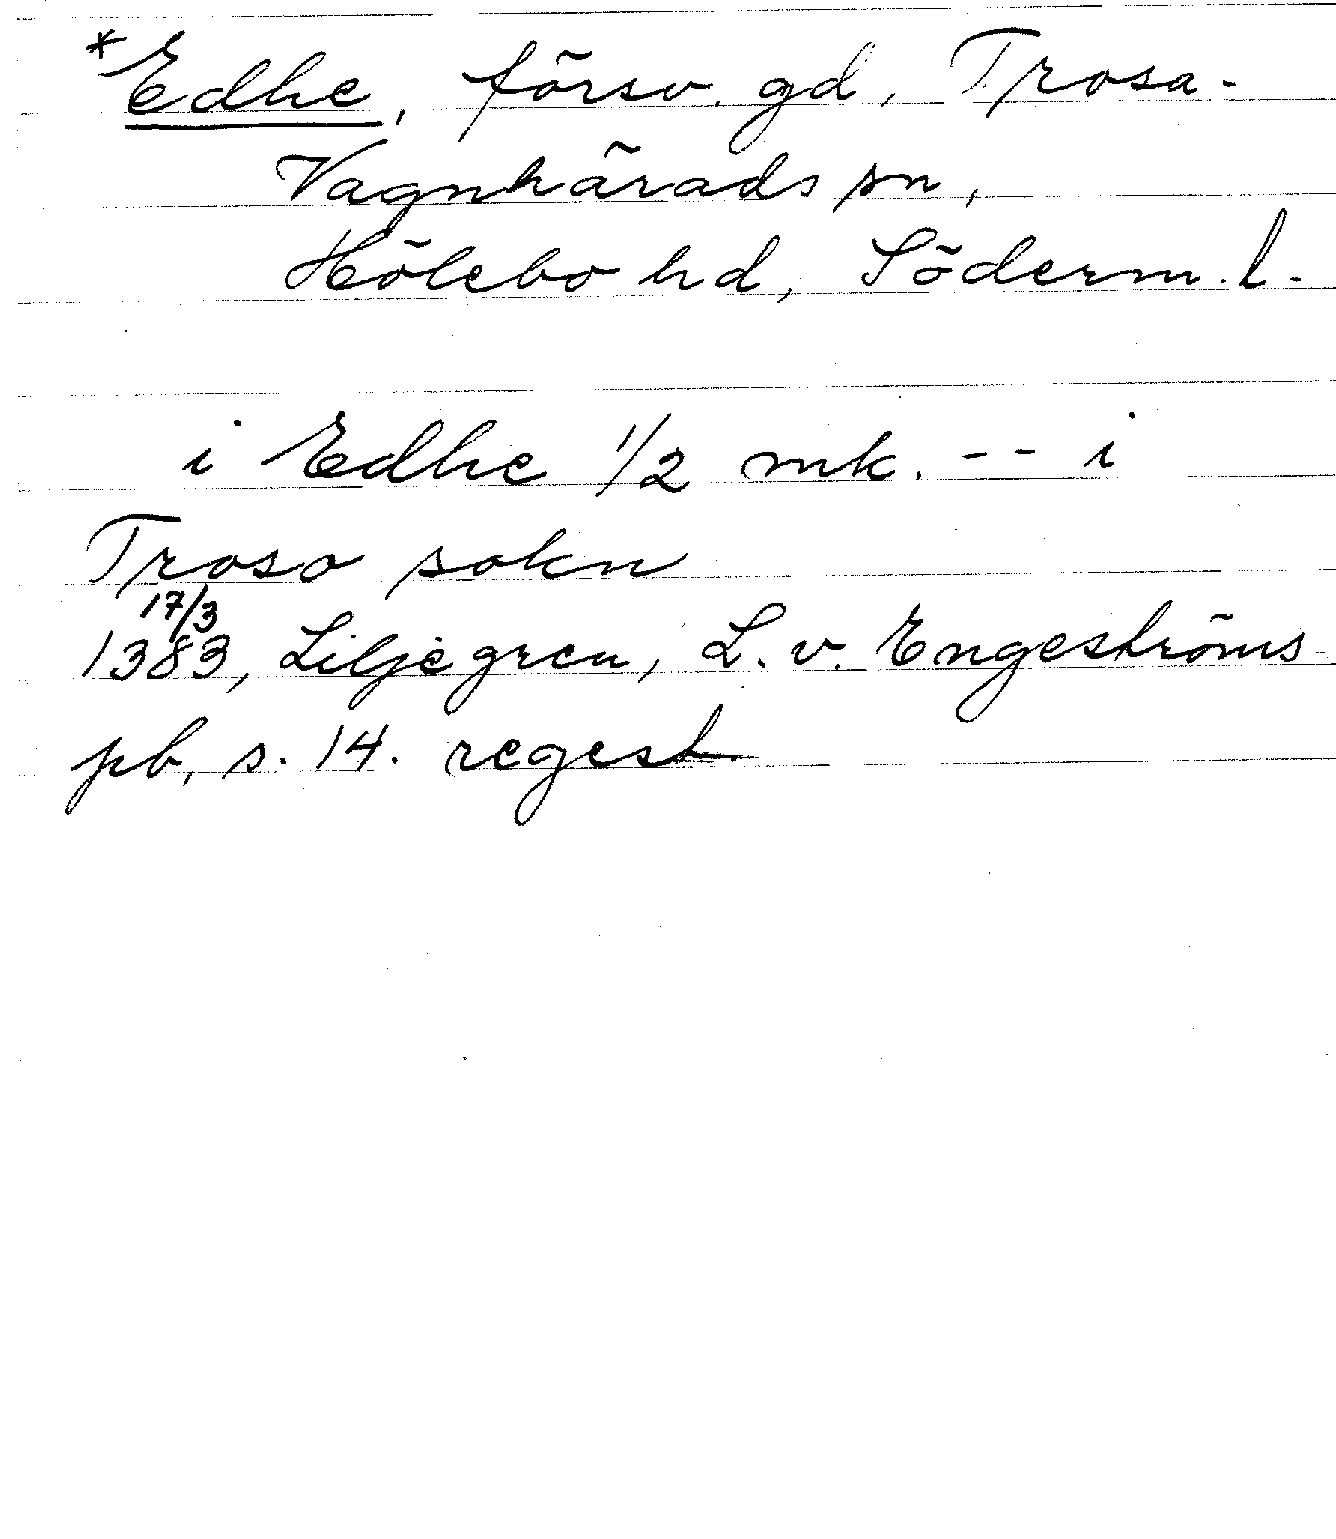 *Edhe, försv. gd, Trosa-
Vagnhärads sn,
Hölebo hd, Söderm. l.
i Edhe 1/2 mk. -- i
Troso sokn
17/3
1383, Liljegren, L. v. Engeströms
pb, s. 14. regest